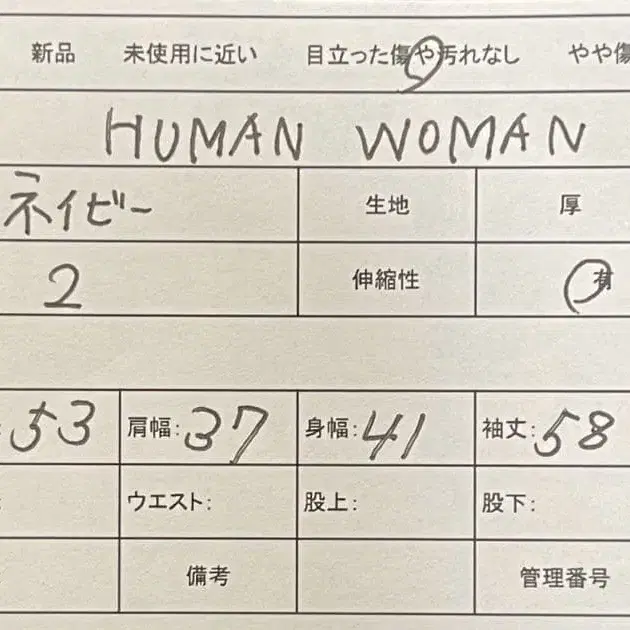 新品 未使用に近い 目立った傷や汚れなし やや傷
HUMAN WOMAN
ネイビー 生地 厚
2 伸縮性 有
53 肩幅: 37 身幅: 41 袖丈: 58
ウエスト: 股上: 股下:
備考 管理番号